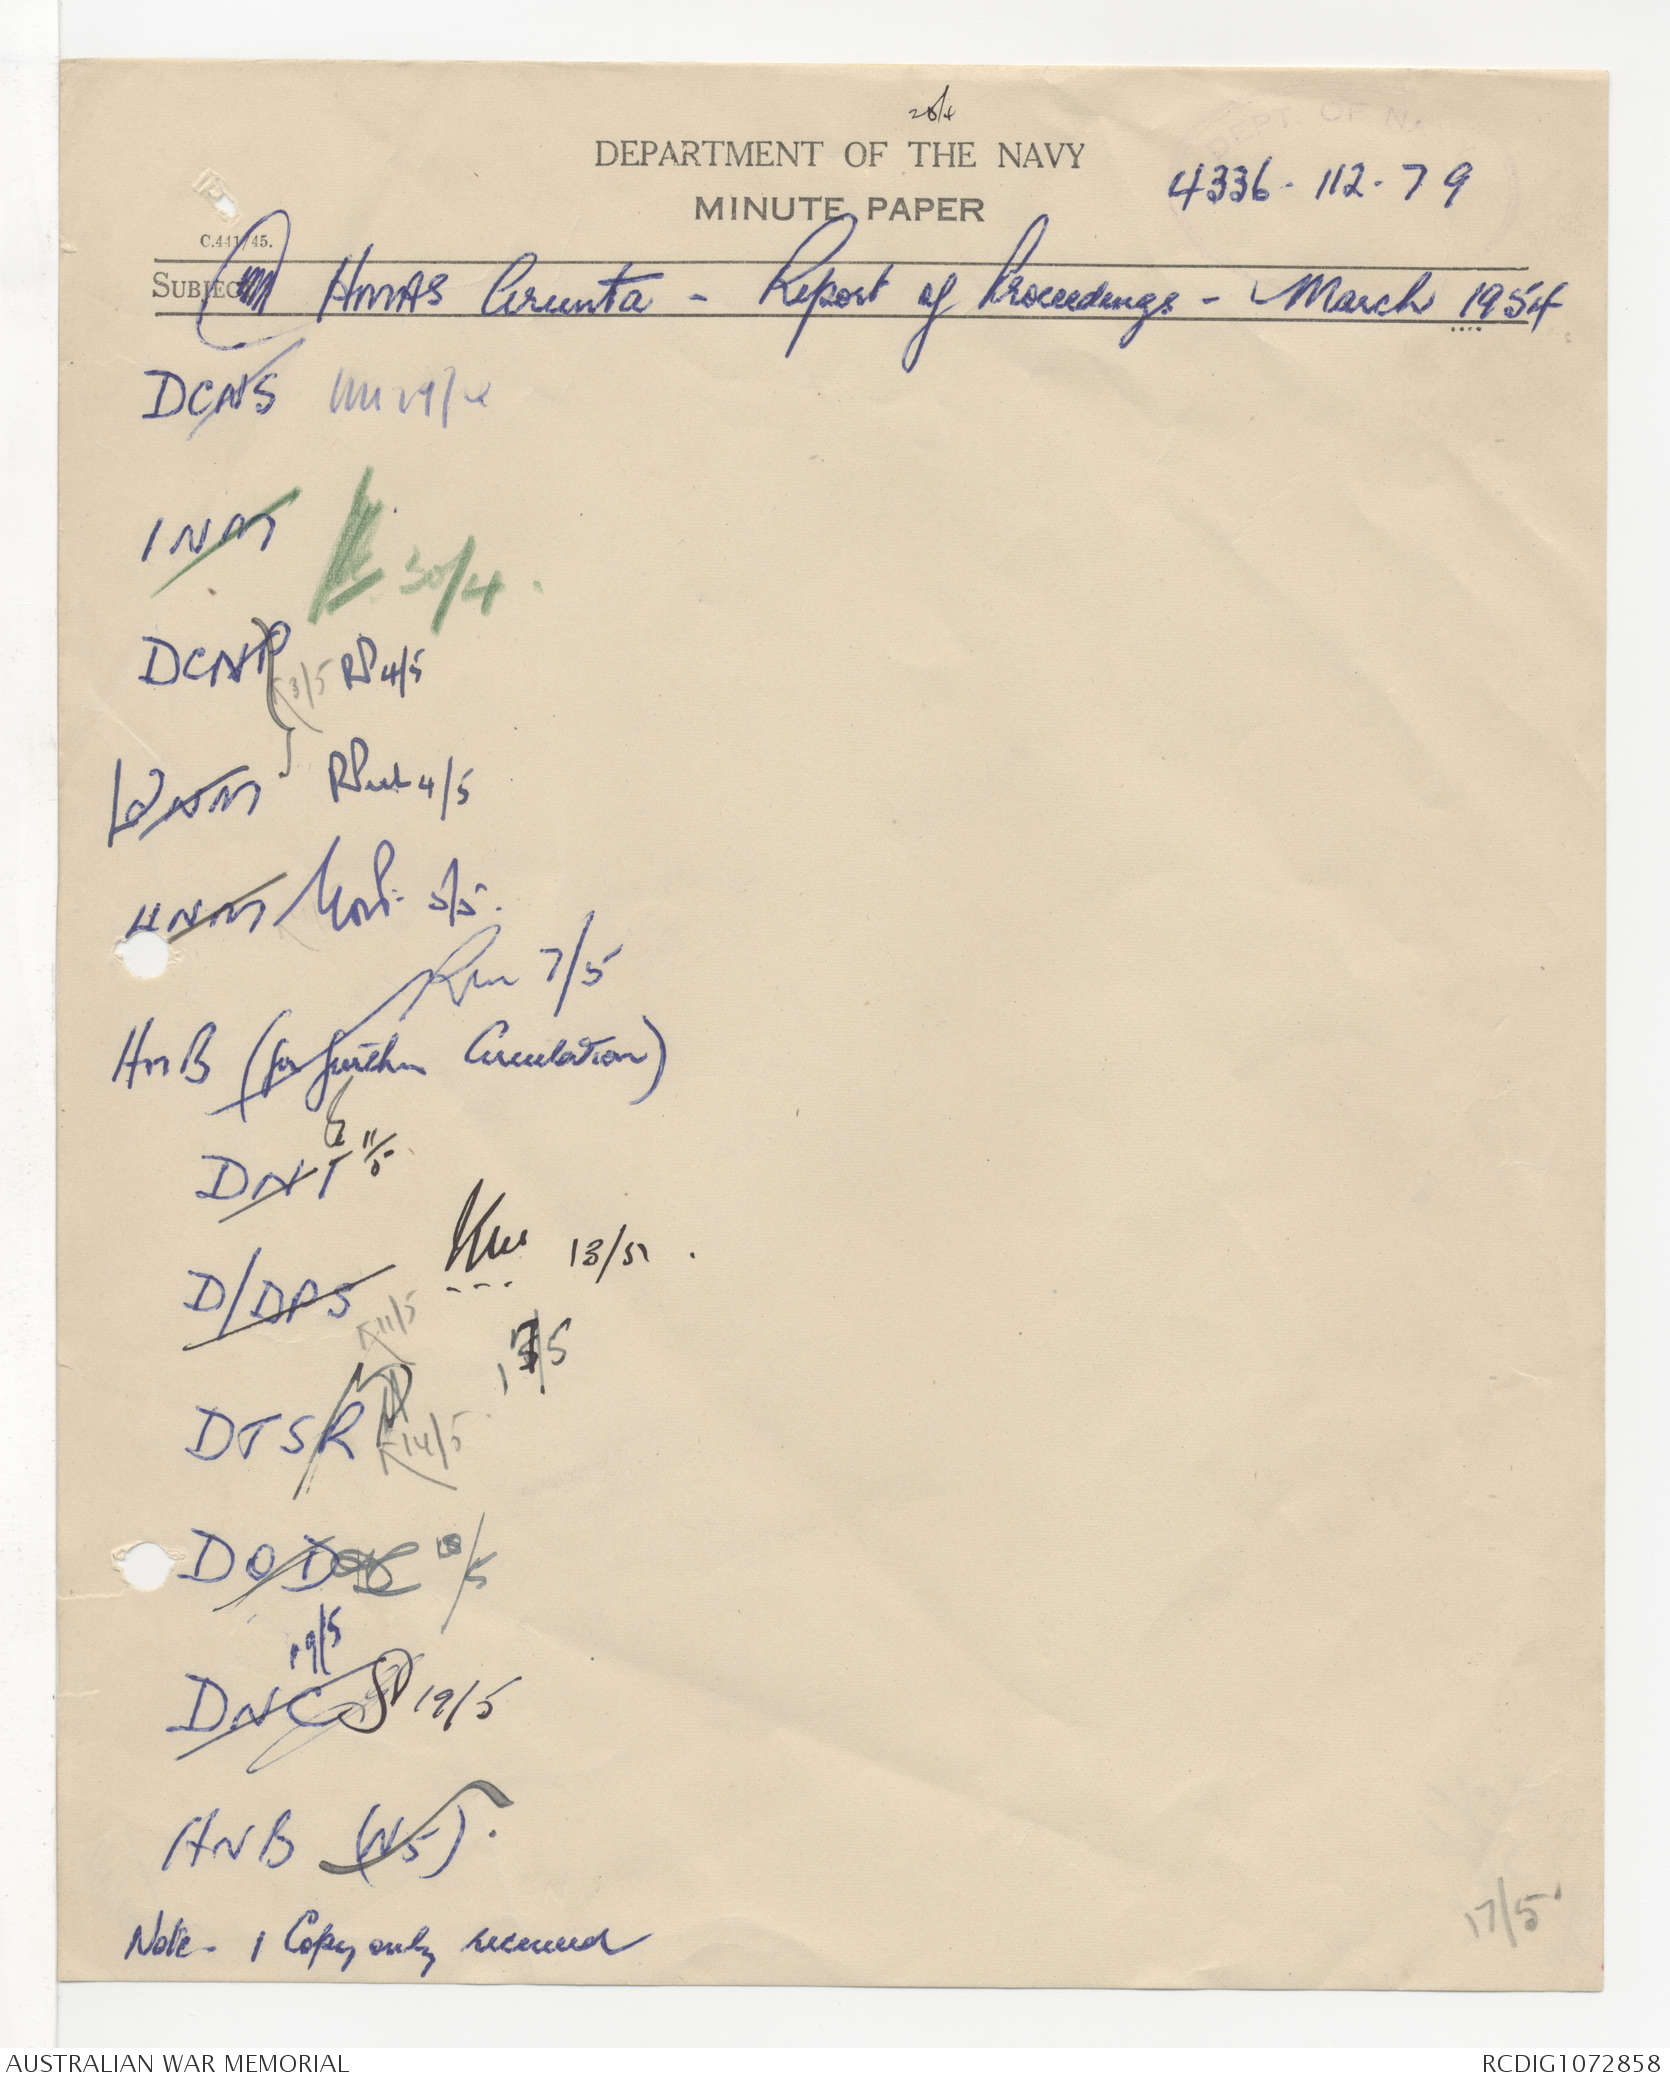 28/4
DEPT. OF NA
DEPARTMENT OF THE NAVY
MINUTE PAPER
4336-112-79
C.441/45.
SUBJEC HMAS Arunta - Report of Proceedings - March 1954
DCNS
1NM 30/4.
DCNP 3/5 RP 4/5
2NM 4/5
4NM 5/5.
7/5
ANB (for further Circulation)
DNT 11/5
D/DPS 13/5.
11/5
17/5
DTSR 14/5
DOD 18/5
19/5
DNC 19/5
ANB (N5).
Note - 1 Copy only received
17/5
AUSTRALIAN WAR MEMORIAL
RCDIG1072858